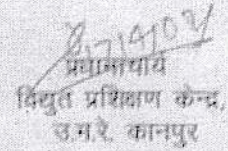 प्रधानाचार्य
विद्युत प्रशिक्षण केन्द्र,
उ.म.रे. कानपुर